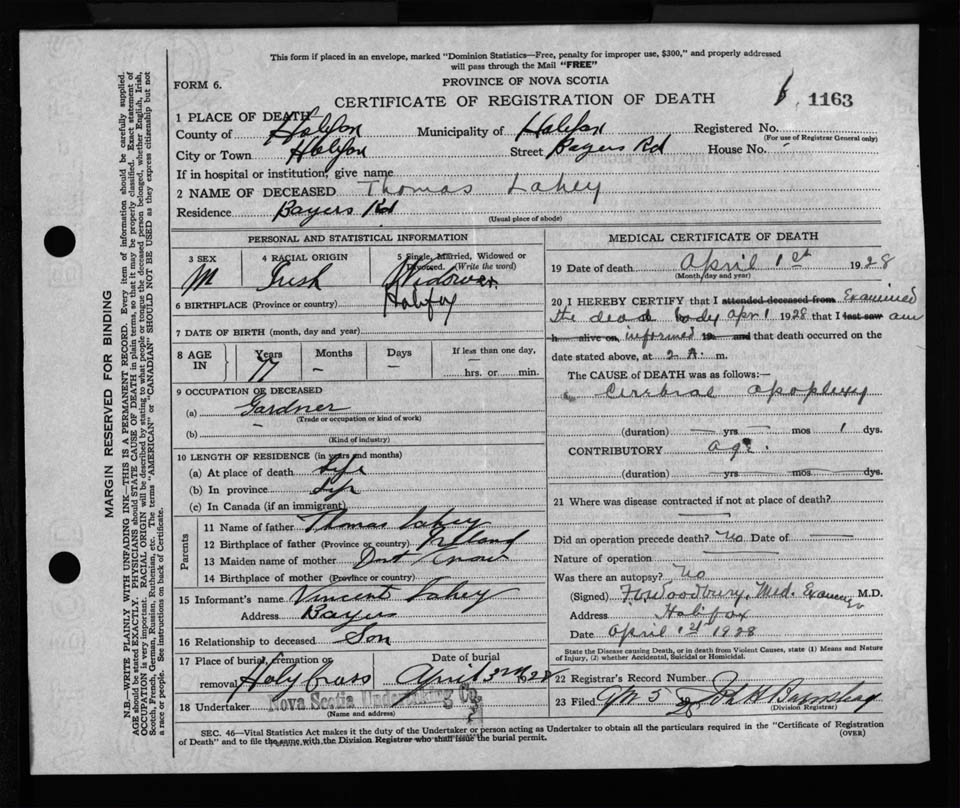 This form if placed in an envelope, marked "Dominion Statistics—Free, penalty for improper use, $300," and properly addressed
will pass through the Mail "FREE"
FORM 6.
PROVINCE OF NOVA SCOTIA
CERTIFICATE OF REGISTRATION OF DEATH
1163
1 PLACE OF DEATH
County of Halifax Municipality of Halifax Registered No.
(For use of Registrar General only)
City or Town Halifax Street Bayers Rd House No.
If in hospital or institution, give name
2 NAME OF DECEASED Thomas Lahey
Residence Bayers Rd
(Usual place of abode)
PERSONAL AND STATISTICAL INFORMATION
3 SEX 4 RACIAL ORIGIN 5 Single, Married, Widowed or
Divorced. (Write the word)
M Irish Widower
6 BIRTHPLACE (Province or country) Halifax
7 DATE OF BIRTH (month, day and year)
8 AGE IN Years Months Days If less than one day,
77 – – – hrs. or min.
9 OCCUPATION OF DECEASED
(a) Gardner
(Trade or occupation or kind of work)
(b) –
(Kind of industry)
10 LENGTH OF RESIDENCE (in years and months)
(a) At place of death Life
(b) In province Life
(c) In Canada (if an immigrant)
Parents
11 Name of father Thomas Lahey
12 Birthplace of father (Province or country) Ireland
13 Maiden name of mother Dont Know
14 Birthplace of mother (Province or country)
15 Informant's name Vincent Lahey
Address Bayers
16 Relationship to deceased Son
17 Place of burial, cremation or removal Holy Cross
Date of burial April 3rd 1928
18 Undertaker Nova Scotia Undertaking Co.
(Name and address)
MEDICAL CERTIFICATE OF DEATH
19 Date of death April 1st 1928
(Month, day and year)
20 I HEREBY CERTIFY that I attended deceased from Examined
the dead body Apr 1 1928 that I last saw am
h alive on informed 19 and that death occurred on the
date stated above, at 2 A. m.
The CAUSE of DEATH was as follows:—
Cerebral apoplexy
(duration) — yrs — mos 1 dys.
CONTRIBUTORY age.
(duration) — yrs — mos — dys.
21 Where was disease contracted if not at place of death?
Did an operation precede death? No Date of —
Nature of operation
Was there an autopsy? No
(Signed) Woodbury, Med. Examiner M.D.
Address Halifax
Date April 1st 1928
State the Disease causing Death, or in death from Violent Causes, state (1) Means and Nature
of Injury, (2) whether Accidental, Suicidal or Homicidal.
22 Registrar's Record Number
23 Filed 5
(Division Registrar)
SEC. 46—Vital Statistics Act makes it the duty of the Undertaker or person acting as Undertaker to obtain all the particulars required in the "Certificate of Registration
of Death" and to file the same with the Division Registrar who shall issue the burial permit.
(OVER)
MARGIN RESERVED FOR BINDING
N.B.—WRITE PLAINLY WITH UNFADING INK—THIS IS A PERMANENT RECORD. Every item of information should be carefully supplied.
AGE should be stated EXACTLY. PHYSICIANS should STATE CAUSE OF DEATH in plain terms, so that it may be properly classified. Exact statement of
OCCUPATION is very important. RACIAL ORIGIN will be described by stating to what people or tongue the deceased person belonged, whether English, Irish,
Scotch, French, German, Russian, Ruthenian, etc. The terms "AMERICAN" or "CANADIAN" SHOULD NOT BE USED as they express citizenship but not
a race or people. See instructions on back of Certificate.